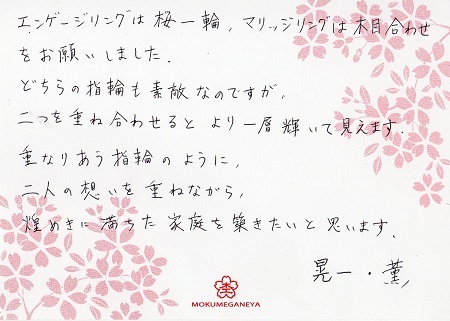 エンゲージリングは桜一輪、マリッジリングは木目合わせ
をお願いしました.
どちらの指輪も素敵なのですが、
二つを重ね合わせると より一層 輝いて見えます.
重なりあう指輪のように、
二人の想いを重ねながら、
煌めきに満ちた家庭を築きたいと思います.
晃一・薫
MOKUMEGANEYA